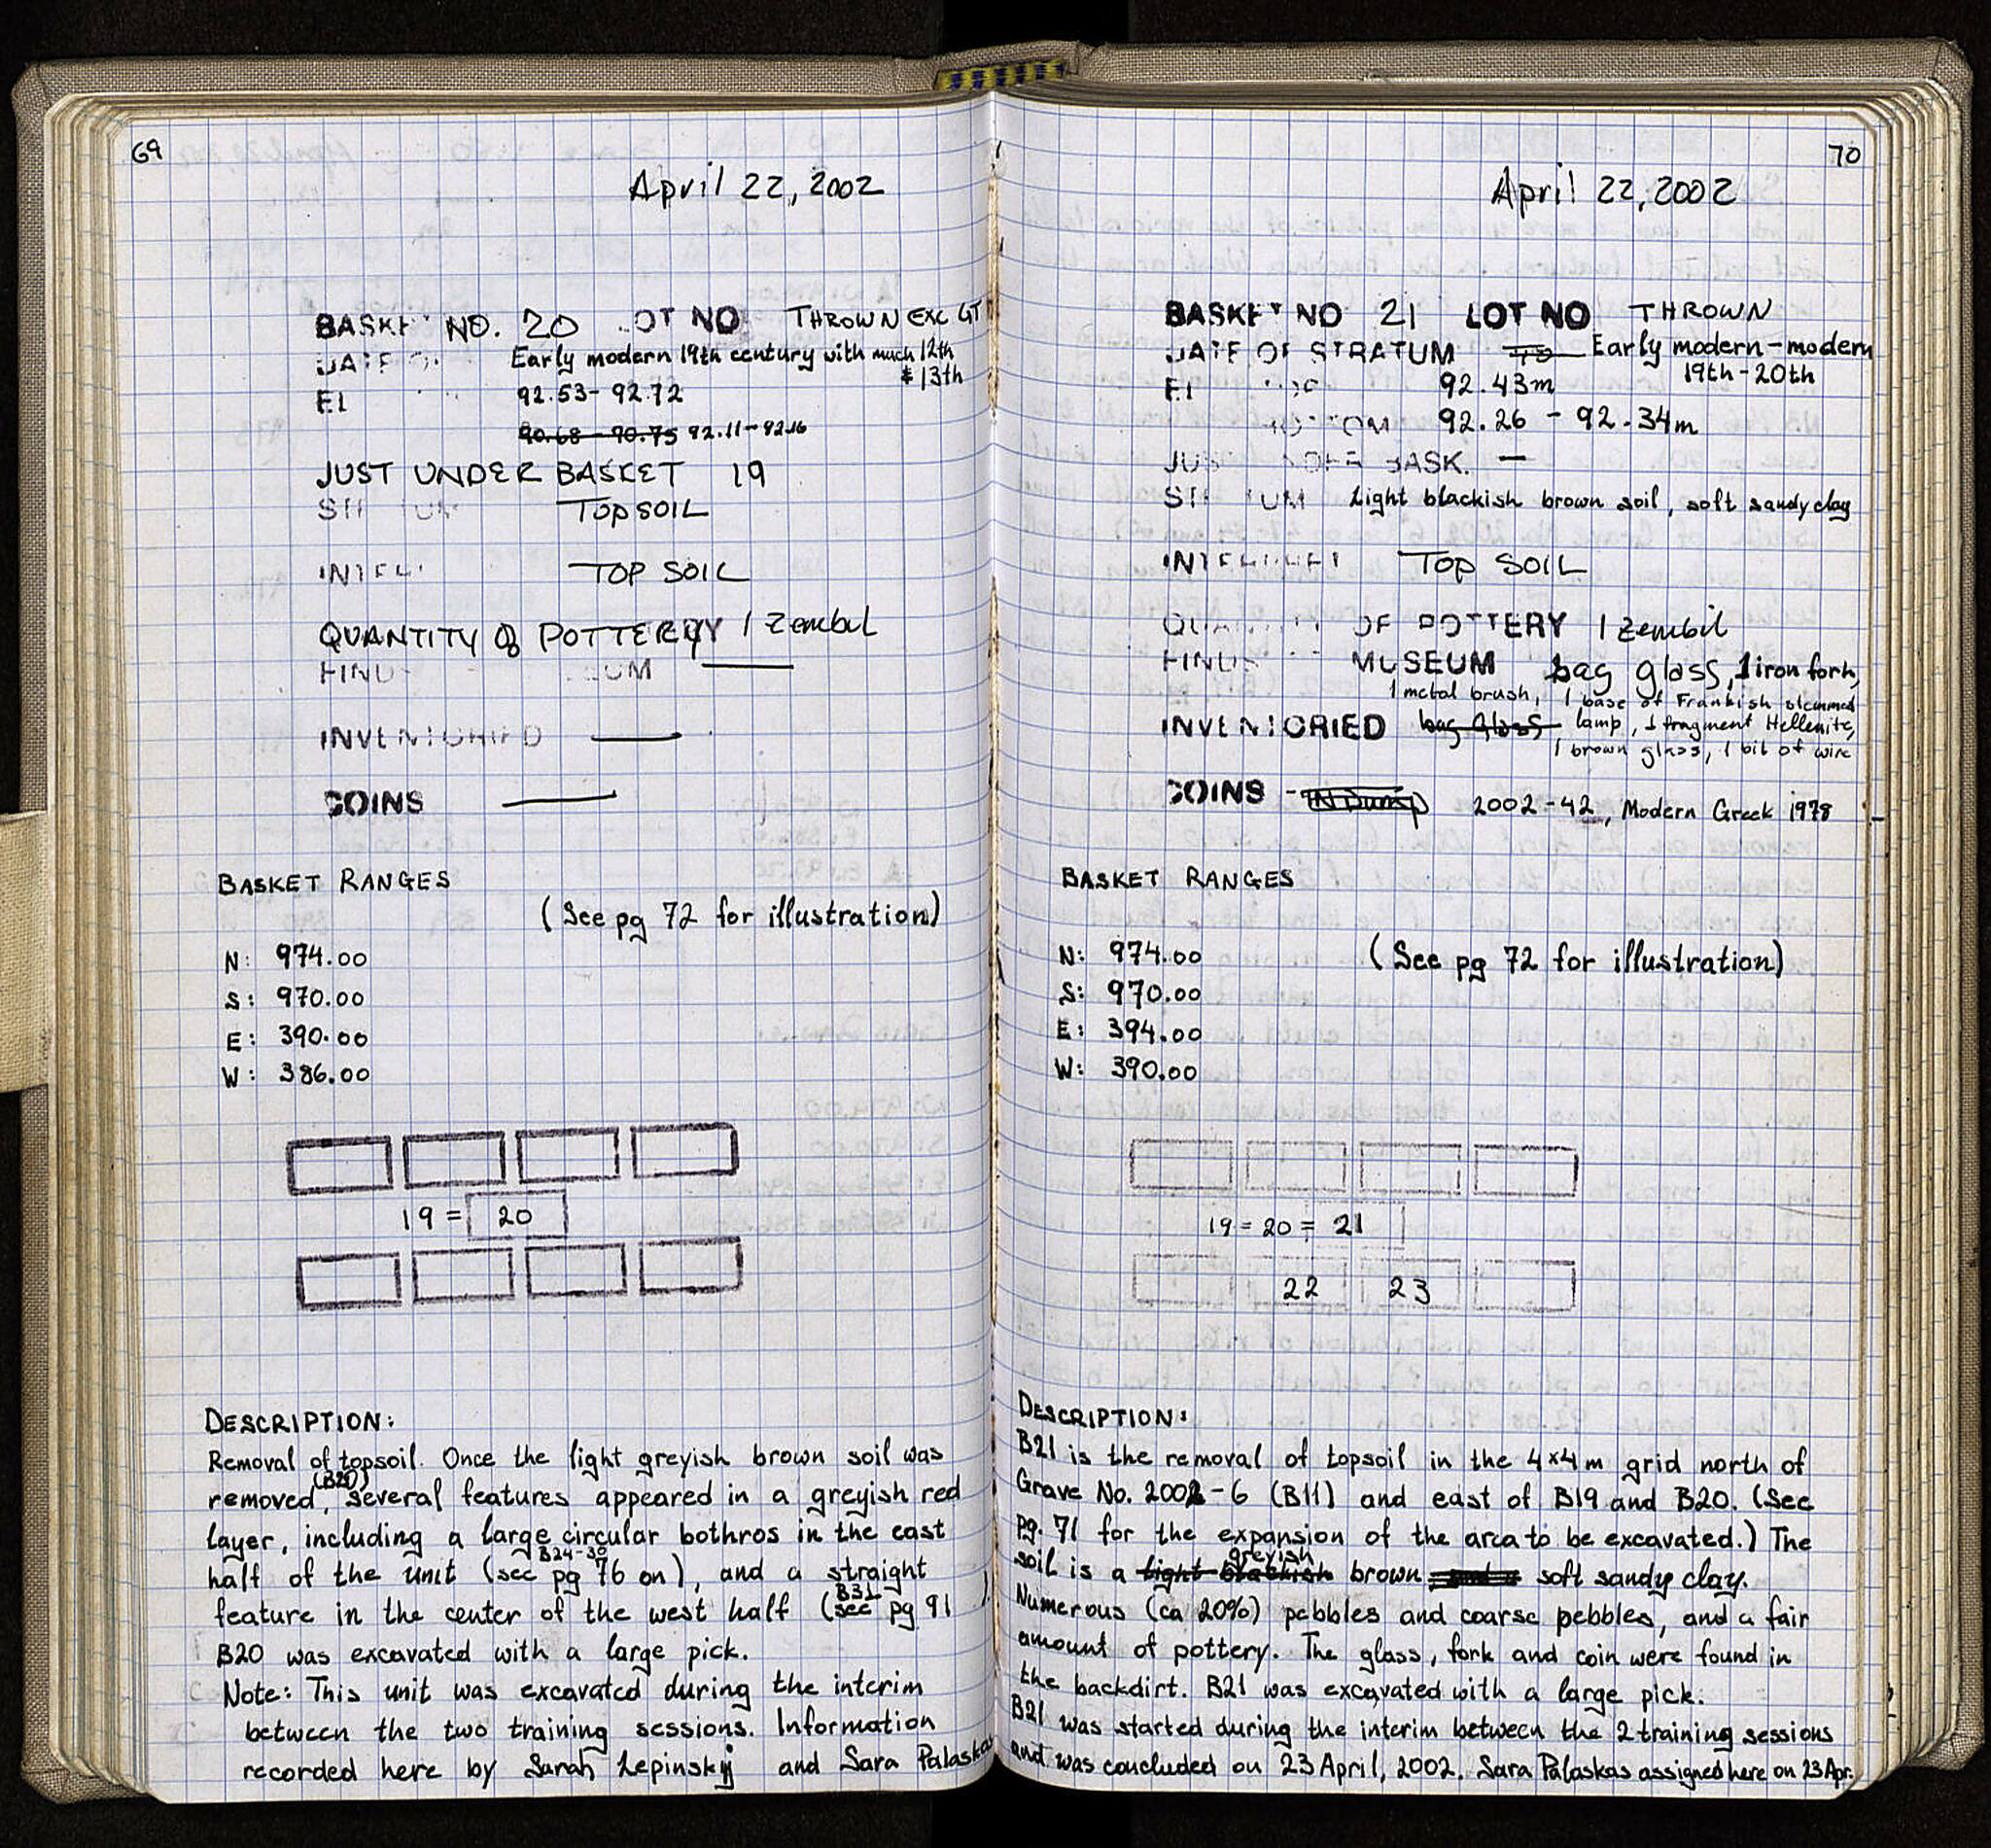 69
April 22, 2002
BASKET NO. 20 LOT NO THROWN EXC GT
DATE OF Early modern 19th century with much 12th
& 13th
EL 92.53-92.72
90.68-90.75 92.11-92.16
JUST UNDER BASKET 19
STRATUM TOPSOIL
INTERPRET TOP SOIL
QUANTITY of POTTERY 1 Zembil
FINDS MUSEUM —
INVENTORIED —
COINS —
BASKET RANGES
(See pg 72 for illustration)
N: 974.00
S: 970.00
E: 390.00
W: 386.00
19 = 20
DESCRIPTION:
Removal of topsoil. Once the light greyish brown soil was
removed (B20), several features appeared in a greyish red
layer, including a large circular bothros in the east
half of the unit (see pg 76 on B24-30), and a straight
feature in the center of the west half (see pg 91 B31)
B20 was excavated with a large pick.
Note: This unit was excavated during the interim
between the two training sessions. Information
recorded here by Sarah Lepinski and Sara Palaskas
70
April 22, 2002
BASKET NO 21 LOT NO THROWN
DATE OF STRATUM Early modern-modern
19th-20th
EL TOP 92.43m
BOTTOM 92.26 - 92.34m
JUST UNDER BASK. —
STRATUM Light blackish brown soil, soft sandy clay
INTERPRET TOP SOIL
QUANTITY OF POTTERY 1 Zembil
FINDS MUSEUM bag glass, 1 iron fork,
1 metal brush, 1 base of Frankish stemmed
INVENTORIED bag glass lamp, 1 fragment Hellenite,
1 brown glass, 1 bit of wire
COINS - IN Dump 2002-42, Modern Greek 1978
BASKET RANGES
N: 974.00 (See pg 72 for illustration)
S: 970.00
E: 394.00
W: 390.00
19 = 20 = 21
22 23
DESCRIPTION:
B21 is the removal of topsoil in the 4x4m grid north of
Grave No. 2002-6 (B11) and east of B19 and B20. (See
pg. 71 for the expansion of the area to be excavated.) The
soil is a light blackish greyish brown soft sandy clay.
Numerous (ca 20%) pebbles and coarse pebbles, and a fair
amount of pottery. The glass, fork and coin were found in
the backdirt. B21 was excavated with a large pick.
B21 was started during the interim between the 2 training sessions
and was concluded on 23 April, 2002. Sara Palaskas assigned here on 23 Apr.